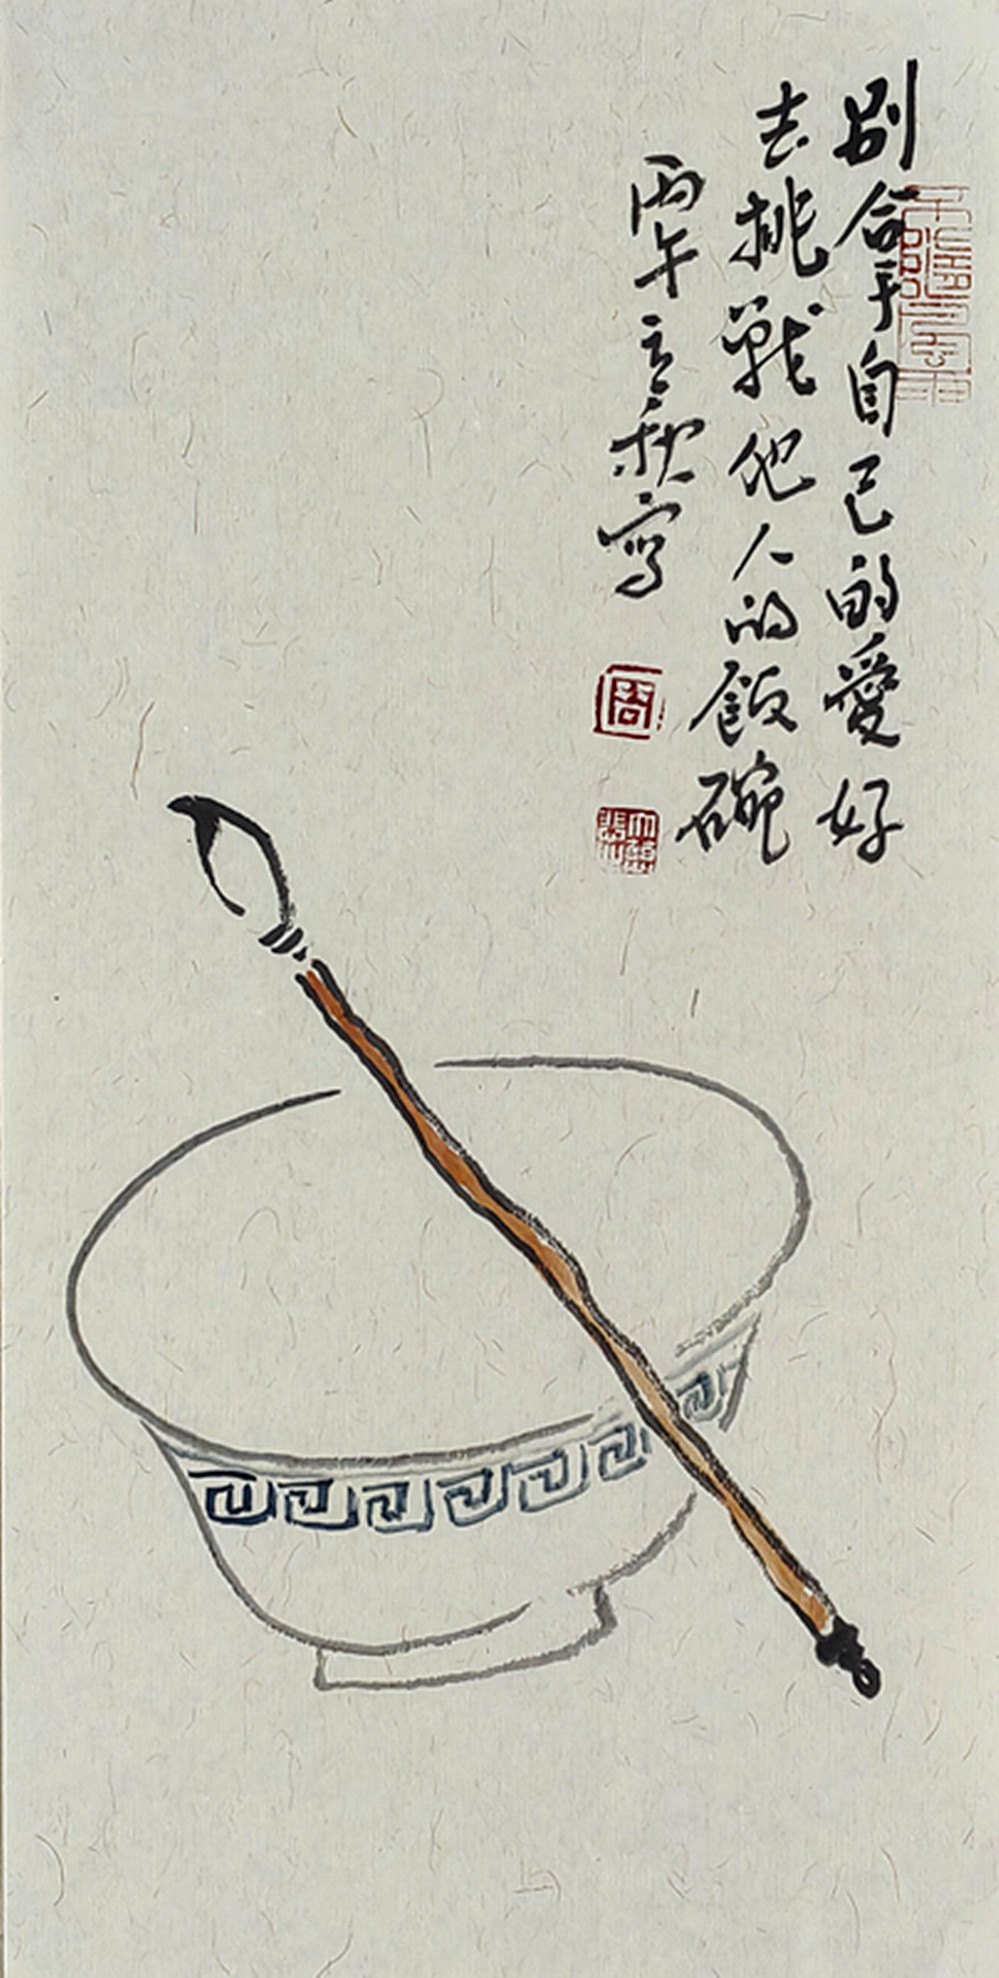 别拿自己的愛好
去挑戰他人的飯碗
丙午立秋寫
周